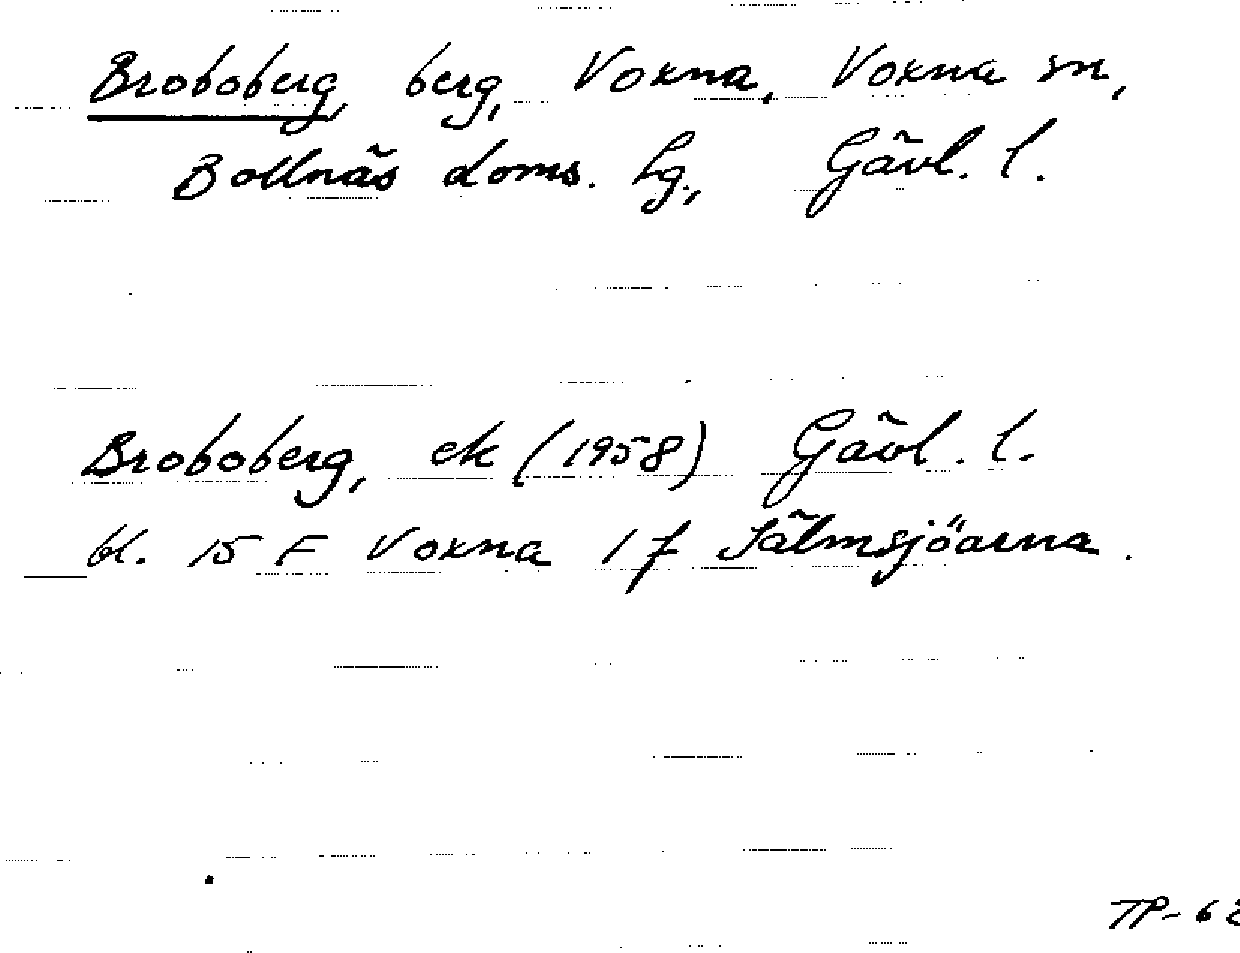 Broboberg, berg, Voxna, Voxna sn,
Bollnäs doms. lg., Gävl. l.
Broboberg, ek (1958) Gävl. l.
bl. 15 F Voxna 1 f Sälmsjöarna.
TP-62